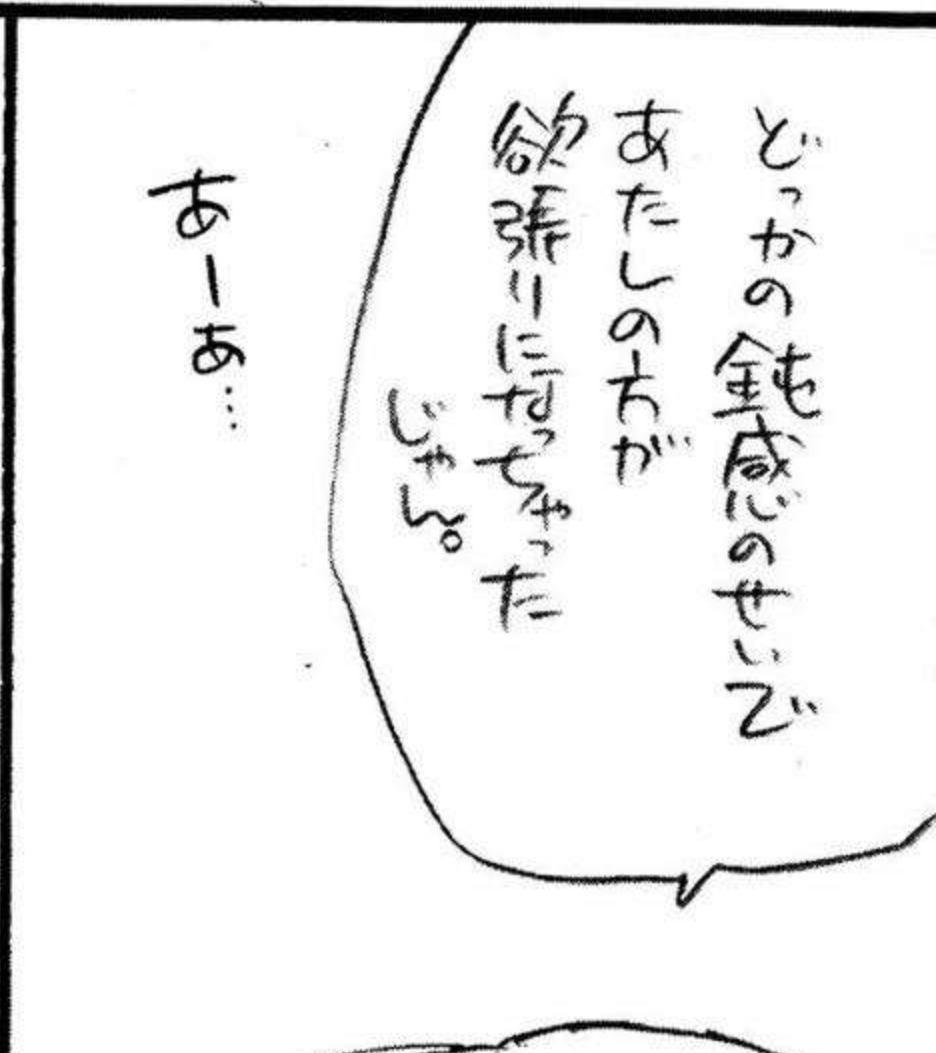 どっかの鈍感のせいで
あたしの方が
欲張りになっちゃった
じゃん。
あーあ…